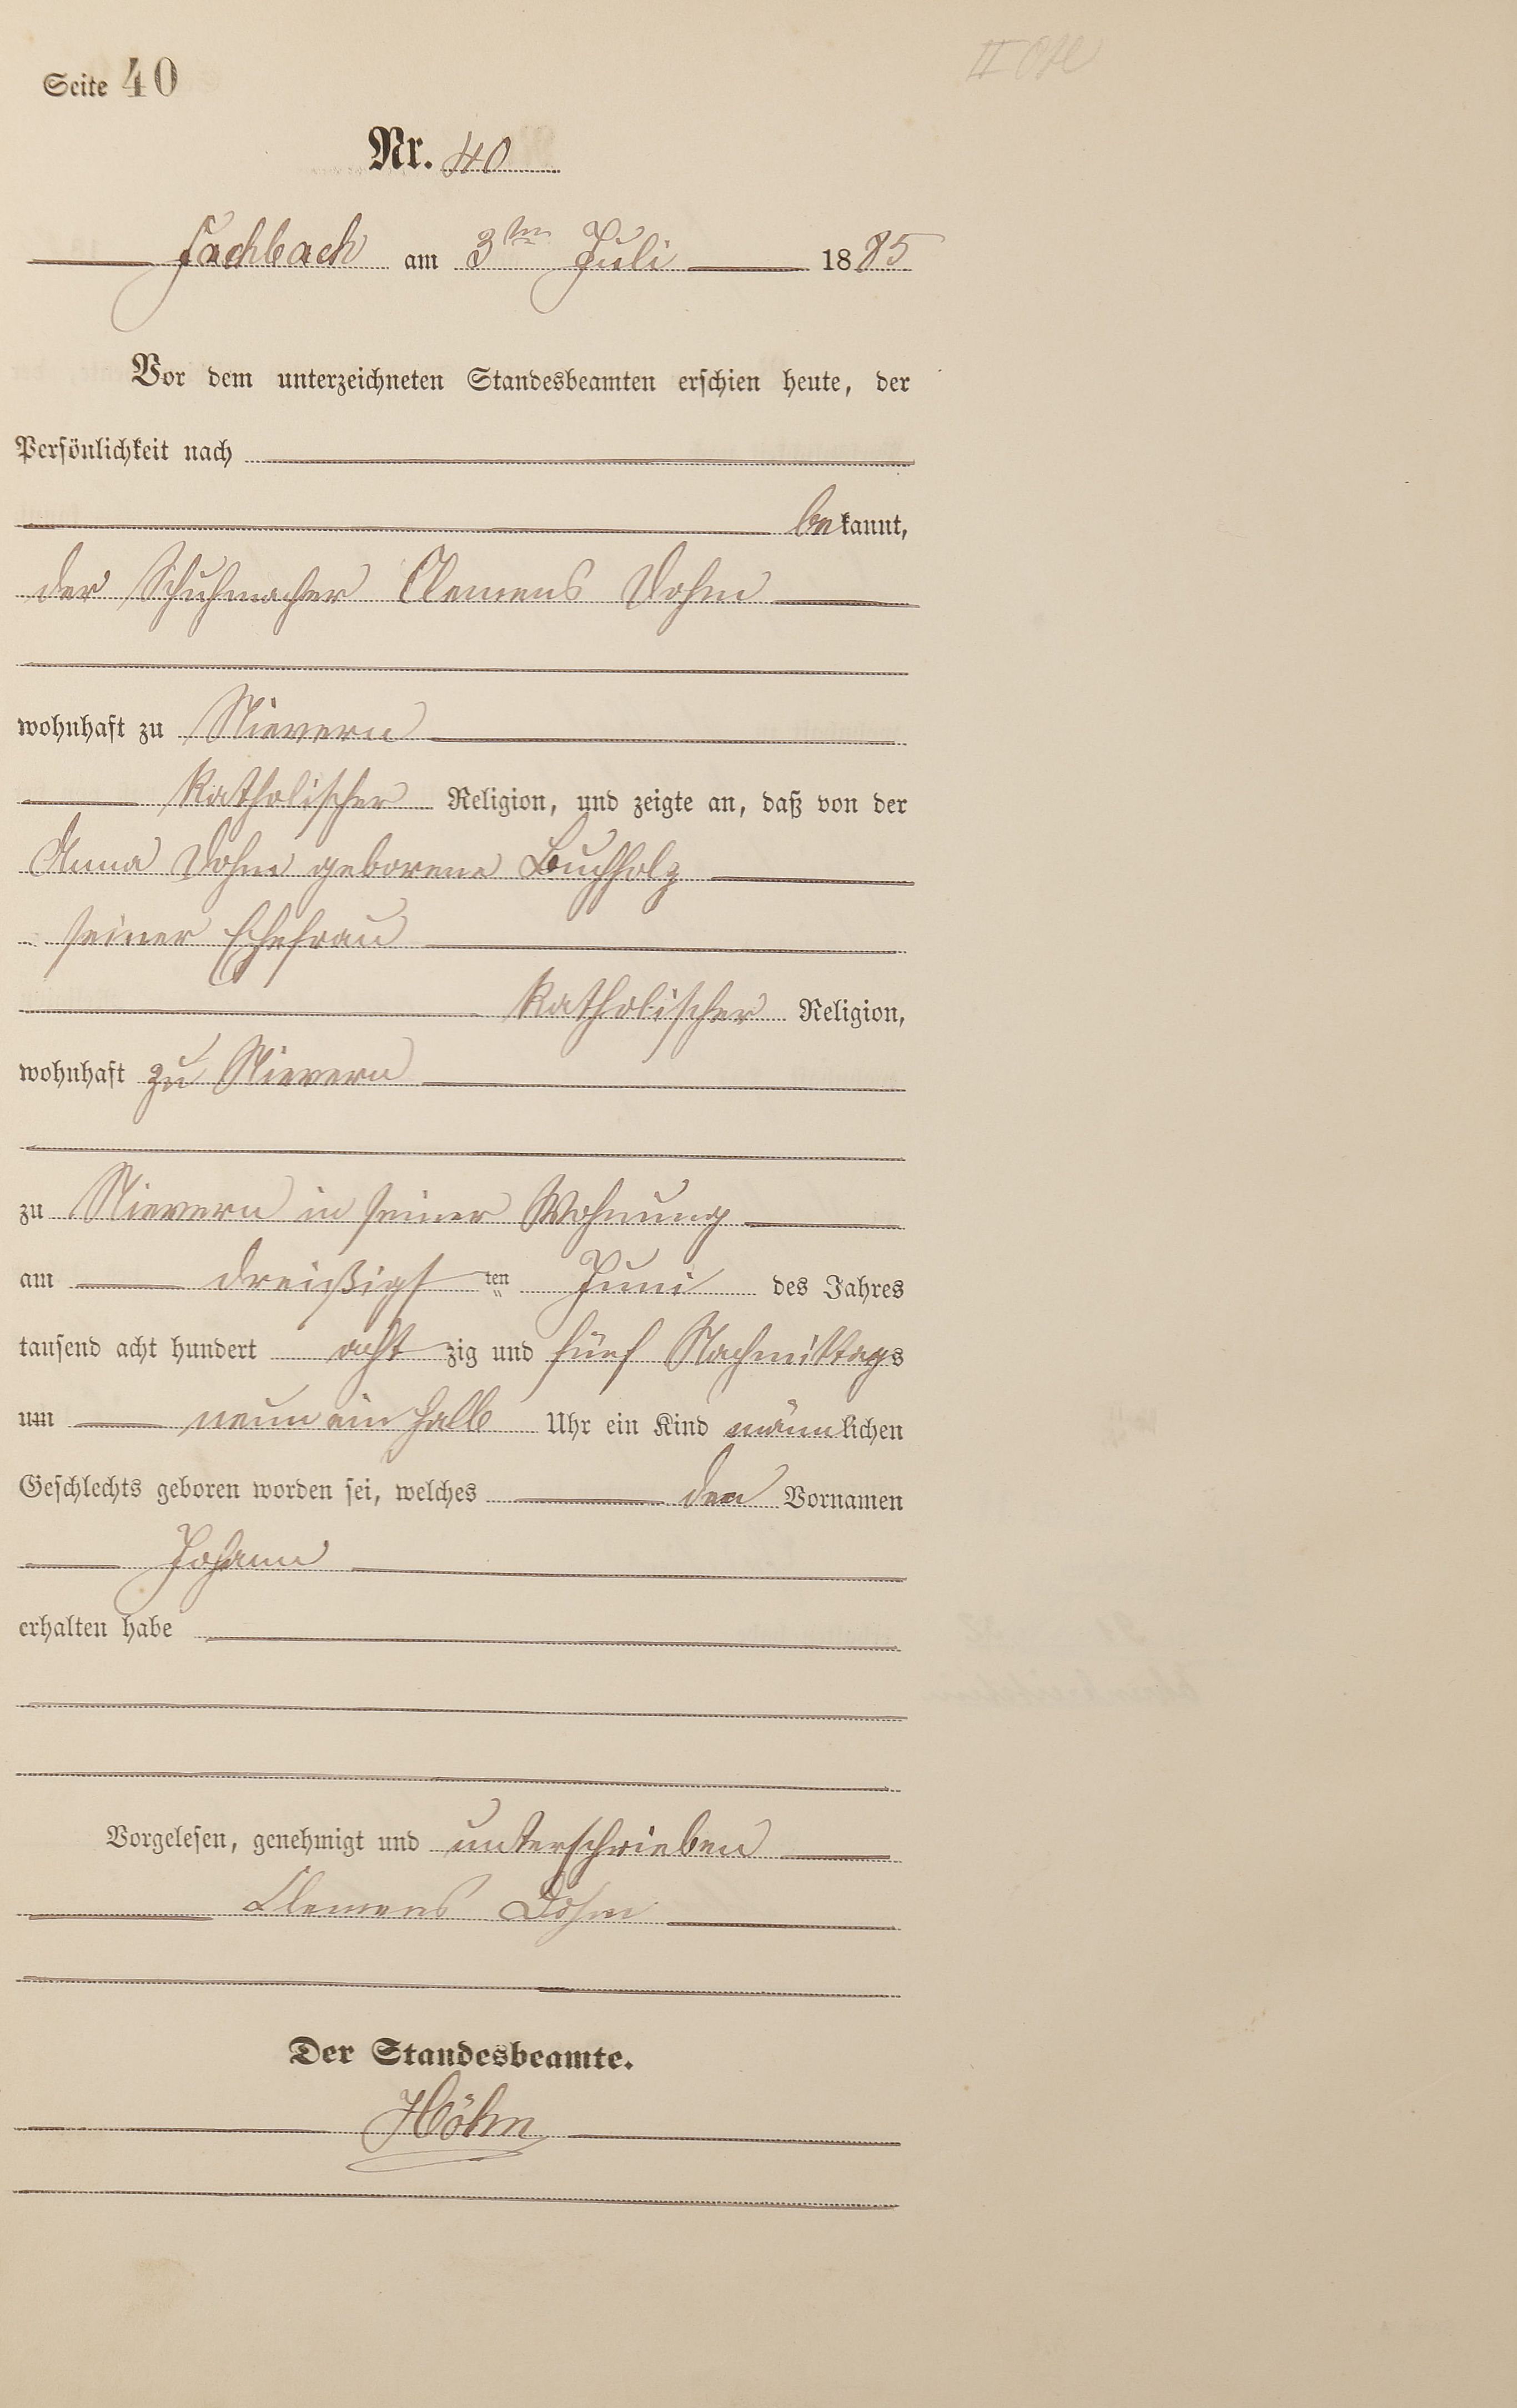 Seite 40
Nr. 40
Fachbach am 3ten Juli 1885
Vor dem unterzeichneten Standesbeamten erschien heute, der
Persönlichkeit nach
bekannt,
der Schuhmacher Clemens Dohm
wohnhaft zu Nievern
katholischer Religion, und zeigte an, daß von der
Anna Dohm geborene Buchholz
seiner Ehefrau
katholischer Religion,
wohnhaft zu Nievern
zu Nievern in seiner Wohnung
am dreißigsten Juni des Jahres
tausend acht hundert achtzig und fünf Nachmittags
um neun ein halb Uhr ein Kind männlichen
Geschlechts geboren worden sei, welches den Vornamen
Johann
erhalten habe
Vorgelesen, genehmigt und unterschrieben
Clemens Dohm
Der Standesbeamte.
Höhn